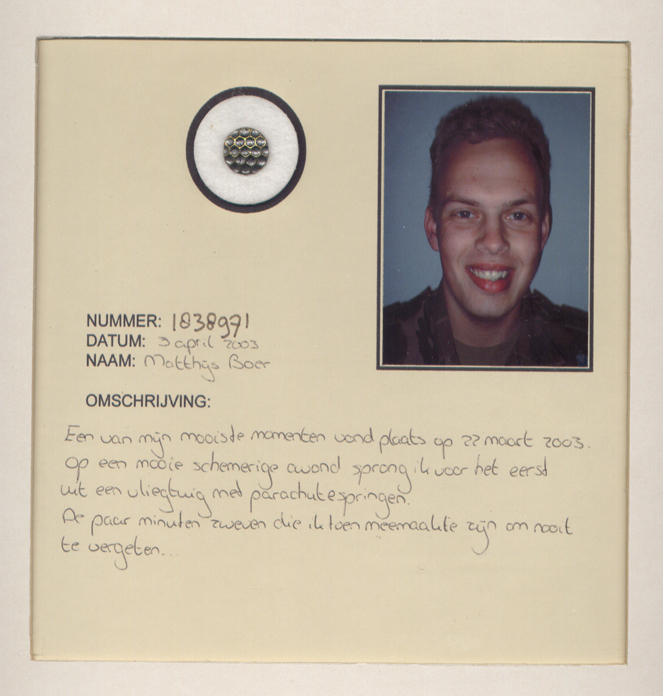 NUMMER: 1838971
DATUM: 3 april 2003
NAAM: Matthijs Boer
OMSCHRIJVING:
Een van mijn mooiste momenten vond plaats op 22 maart 2003.
Op een mooie schemerige avond sprong ik voor het eerst
uit een vliegtuig met parachutespringen.
De paar minuten zweven die ik toen meemaakte zijn om nooit
te vergeten...